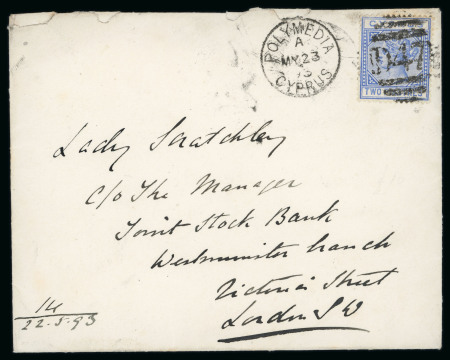 POLYMEDIA
A
MY 23
93
CYPRUS
D47
TWO
Lady Scratchley
c/o The Manager
Joint Stock Bank
Westminster branch
Victoria Street
London S W
14
22.5.93